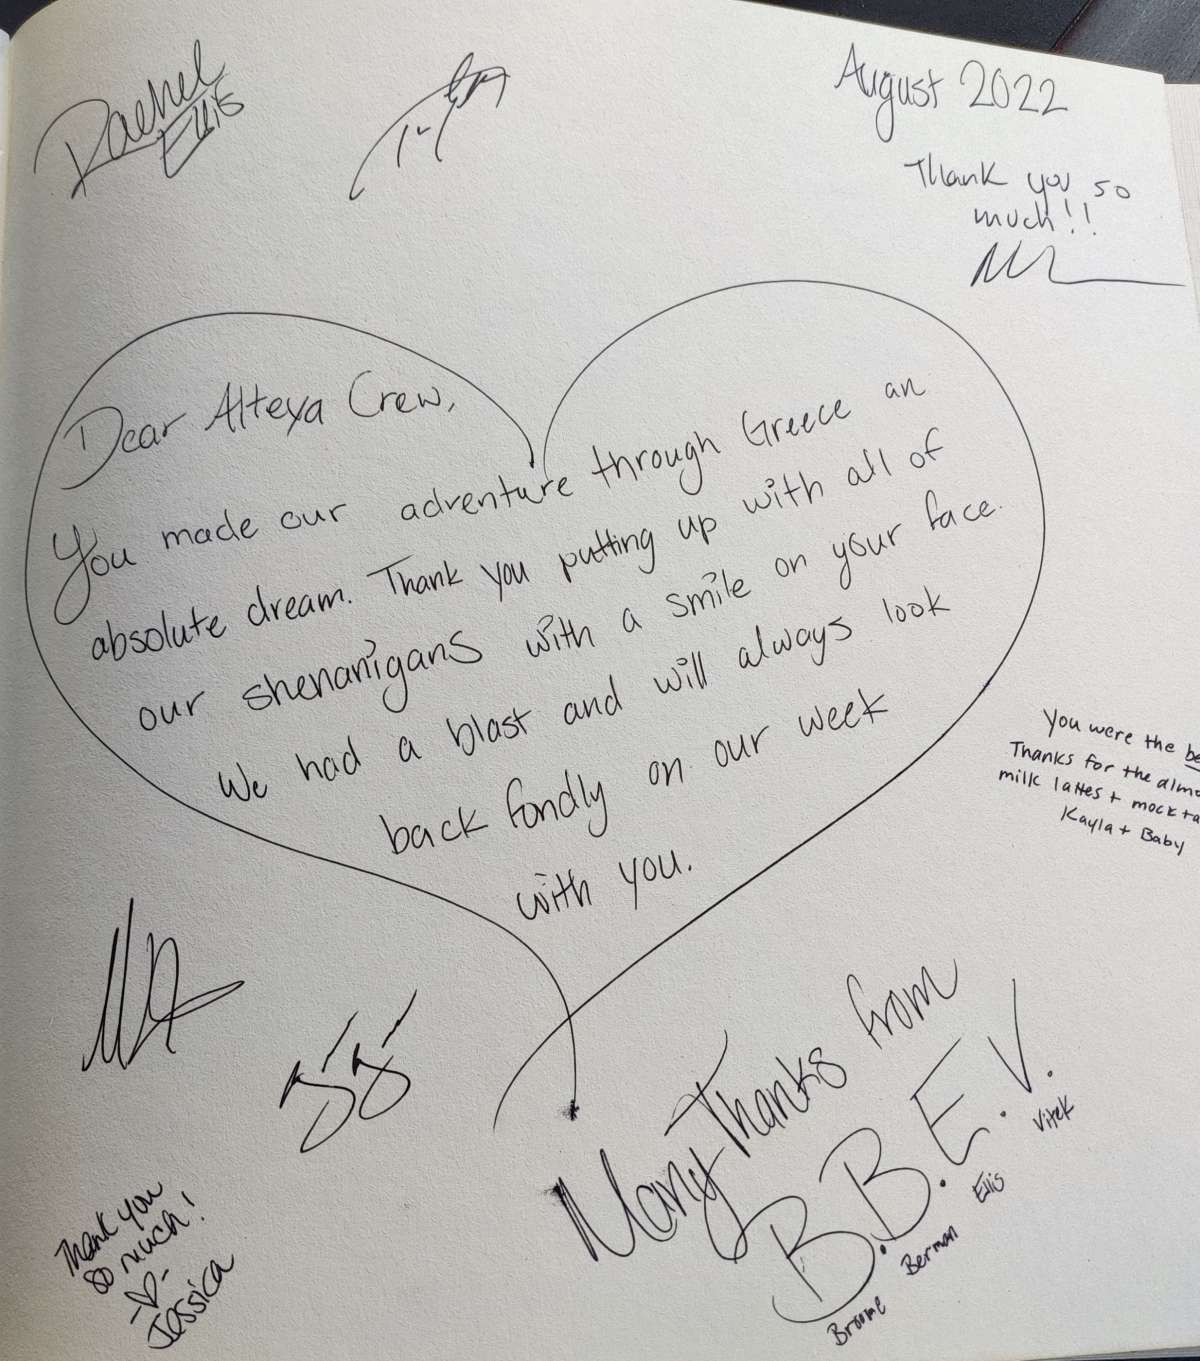 Rachel
Ellis
August 2022
Thank you so
much!!
Dear Alteya Crew,
You made our adventure through Greece an
absolute dream. Thank you putting up with all of
our shenanigans with a smile on your face.
We had a blast and will always look
back fondly on our week
with you.
You were the be
Thanks for the almo
milk lattes + mockta
Kayla + Baby
Many Thanks from
B.B.E.V.
Broome
Berman
Ellis
Vitek
Thank you
so much!
Jessica